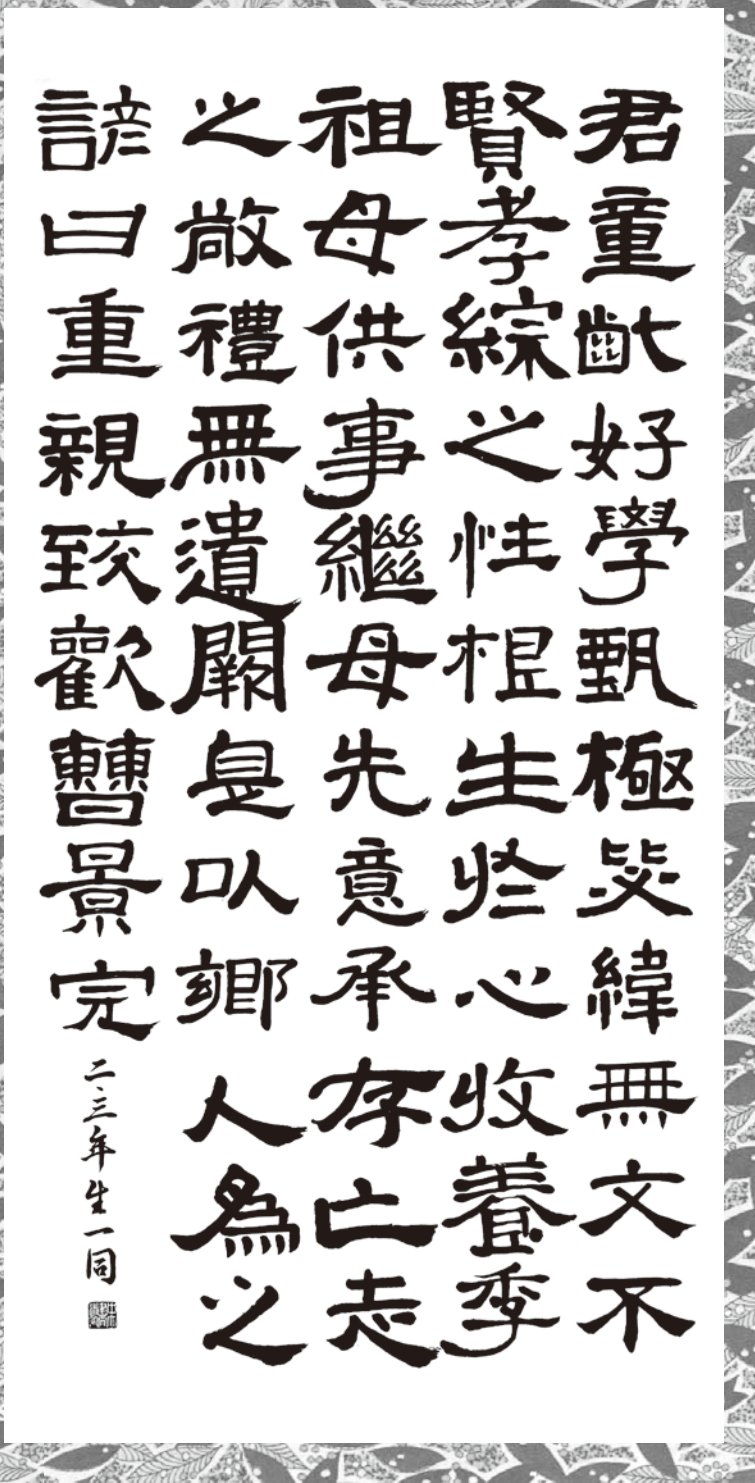 君童齔好學甄極毖緯無文不
賢孝綜之性根生於心收養季
祖母供事繼母先意承存亡志
之敬禮無遺闕是以鄉人爲之
諺曰重親致歡曹景完
二、三年生一同